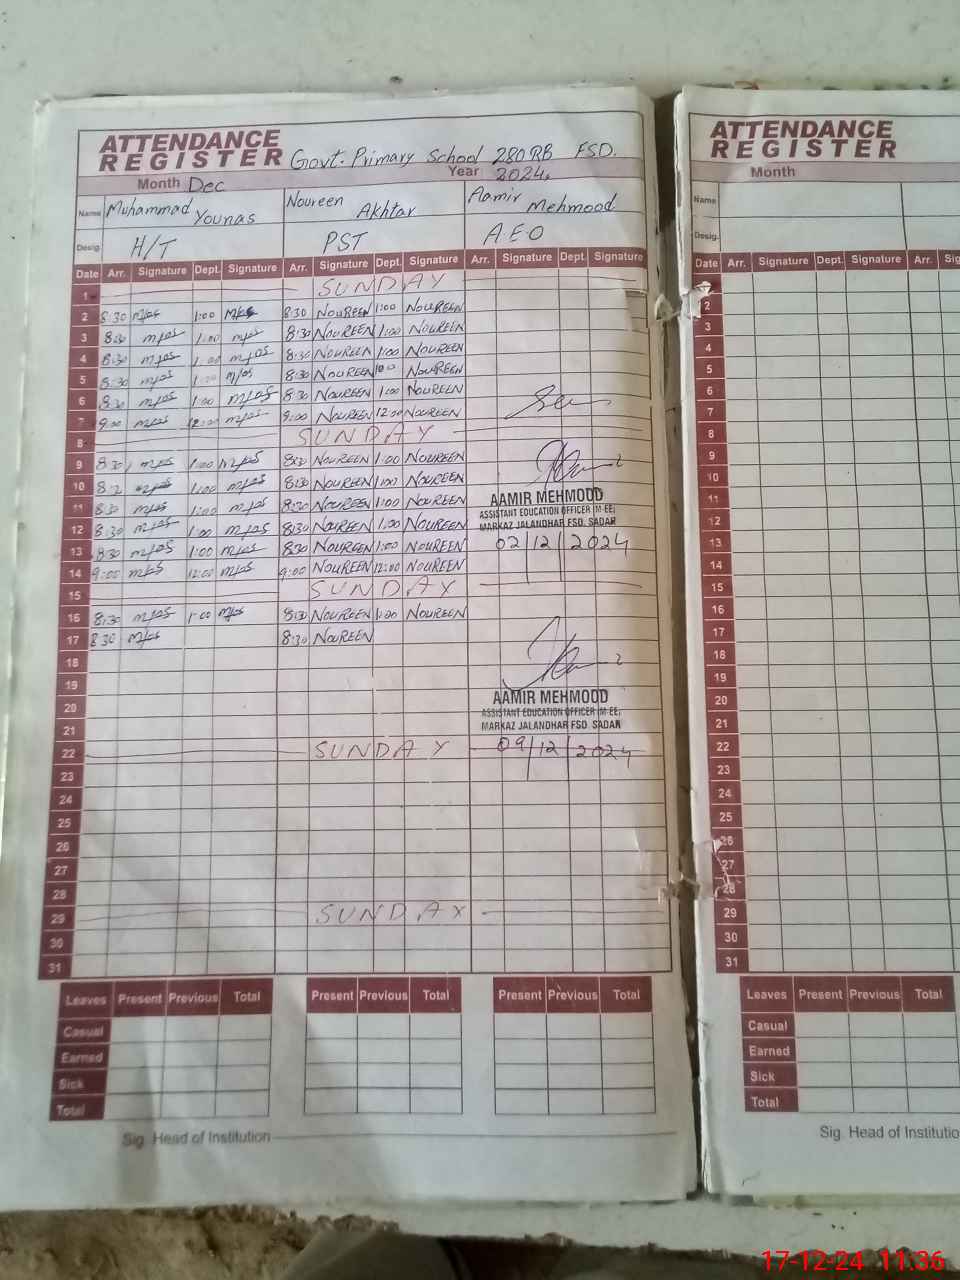 ATTENDANCE REGISTER Govt. Primary School 280 RB FSD.
Month Dec Year 2024.
Name Muhammad Younas Noureen Akhtar Aamir Mehmood
Desig. H/T PST A.E.O
Date Arr. Signature Dept. Signature Arr. Signature Dept. Signature Arr. Signature Dept. Signature
1 SUNDAY
2 8:30 1:00 8:30 NOUREEN 1:00 NOUREEN
3 8:30 1:00 8:30 NOUREEN 1:00 NOUREEN
4 8:30 1:00 8:30 NOUREEN 1:00 NOUREEN
5 8:30 1:00 8:30 NOUREEN 1:00 NOUREEN
6 8:30 1:00 8:30 NOUREEN 1:00 NOUREEN
7 9:00 12:00 9:00 NOUREEN 12:00 NOUREEN
8 SUNDAY
9 8:30 1:00 8:30 NOUREEN 1:00 NOUREEN
10 1:00 8:30 NOUREEN 1:00 NOUREEN
11 8:30 1:00 8:30 NOUREEN 1:00 NOUREEN
12 8:30 1:00 8:30 NOUREEN 1:00 NOUREEN
13 8:30 1:00 8:30 NOUREEN 1:00 NOUREEN
14 9:00 12:00 9:00 NOUREEN 12:00 NOUREEN
15 SUNDAY
16 8:30 1:00 8:30 NOUREEN 1:00 NOUREEN
17 8:30 8:30 NOUREEN
18
19
20
21
22 SUNDAY
23
24
25
26
27
28
29 SUNDAY
30
31
AAMIR MEHMOOD
ASSISTANT EDUCATION OFFICER (M-EE)
MARKAZ JALANDHAR FSD. SADAR
02/12/2024
AAMIR MEHMOOD
ASSISTANT EDUCATION OFFICER (M-EE)
MARKAZ JALANDHAR FSD. SADAR
09/12/2024
Leaves Present Previous Total Present Previous Total Present Previous Total
Casual
Earned
Sick
Total
Sig. Head of Institution
ATTENDANCE REGISTER
Month
Name
Desig.
Date Arr. Signature Dept. Signature Arr.
2
3
4
5
6
7
8
9
10
11
12
13
14
15
16
17
18
19
20
21
22
23
24
25
26
27
28
29
30
31
Leaves Present Previous Total
Casual
Earned
Sick
Total
Sig. Head of Institutio
17-12-24 11:36